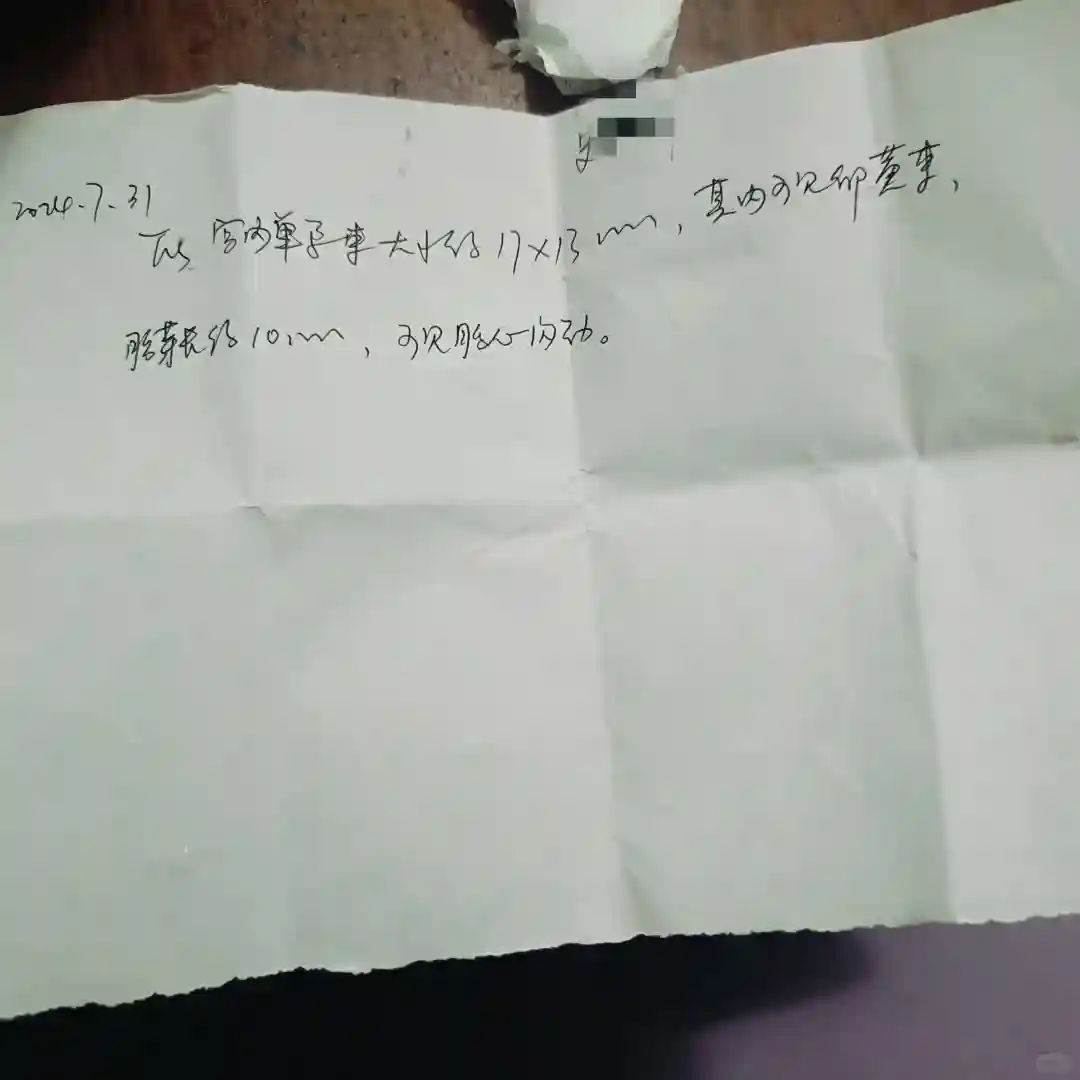 2024.7.31
Tvs 宫内单孕囊大小约17×13mm，其内可见卵黄囊，
胎芽长约10mm，可见胎心闪动。